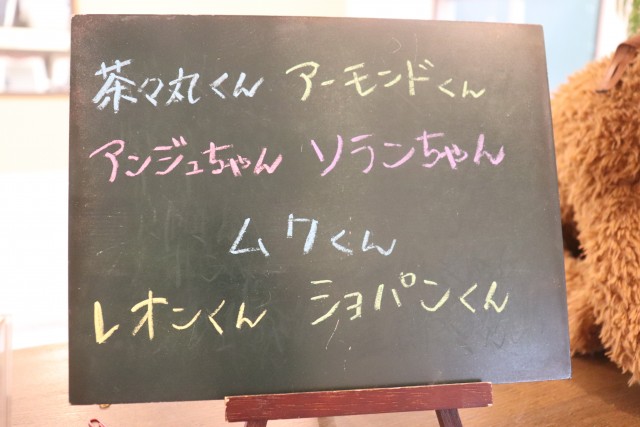 茶々丸くん アーモンドくん
アンジュちゃん ソランちゃん
ムクくん
レオンくん ショパンくん